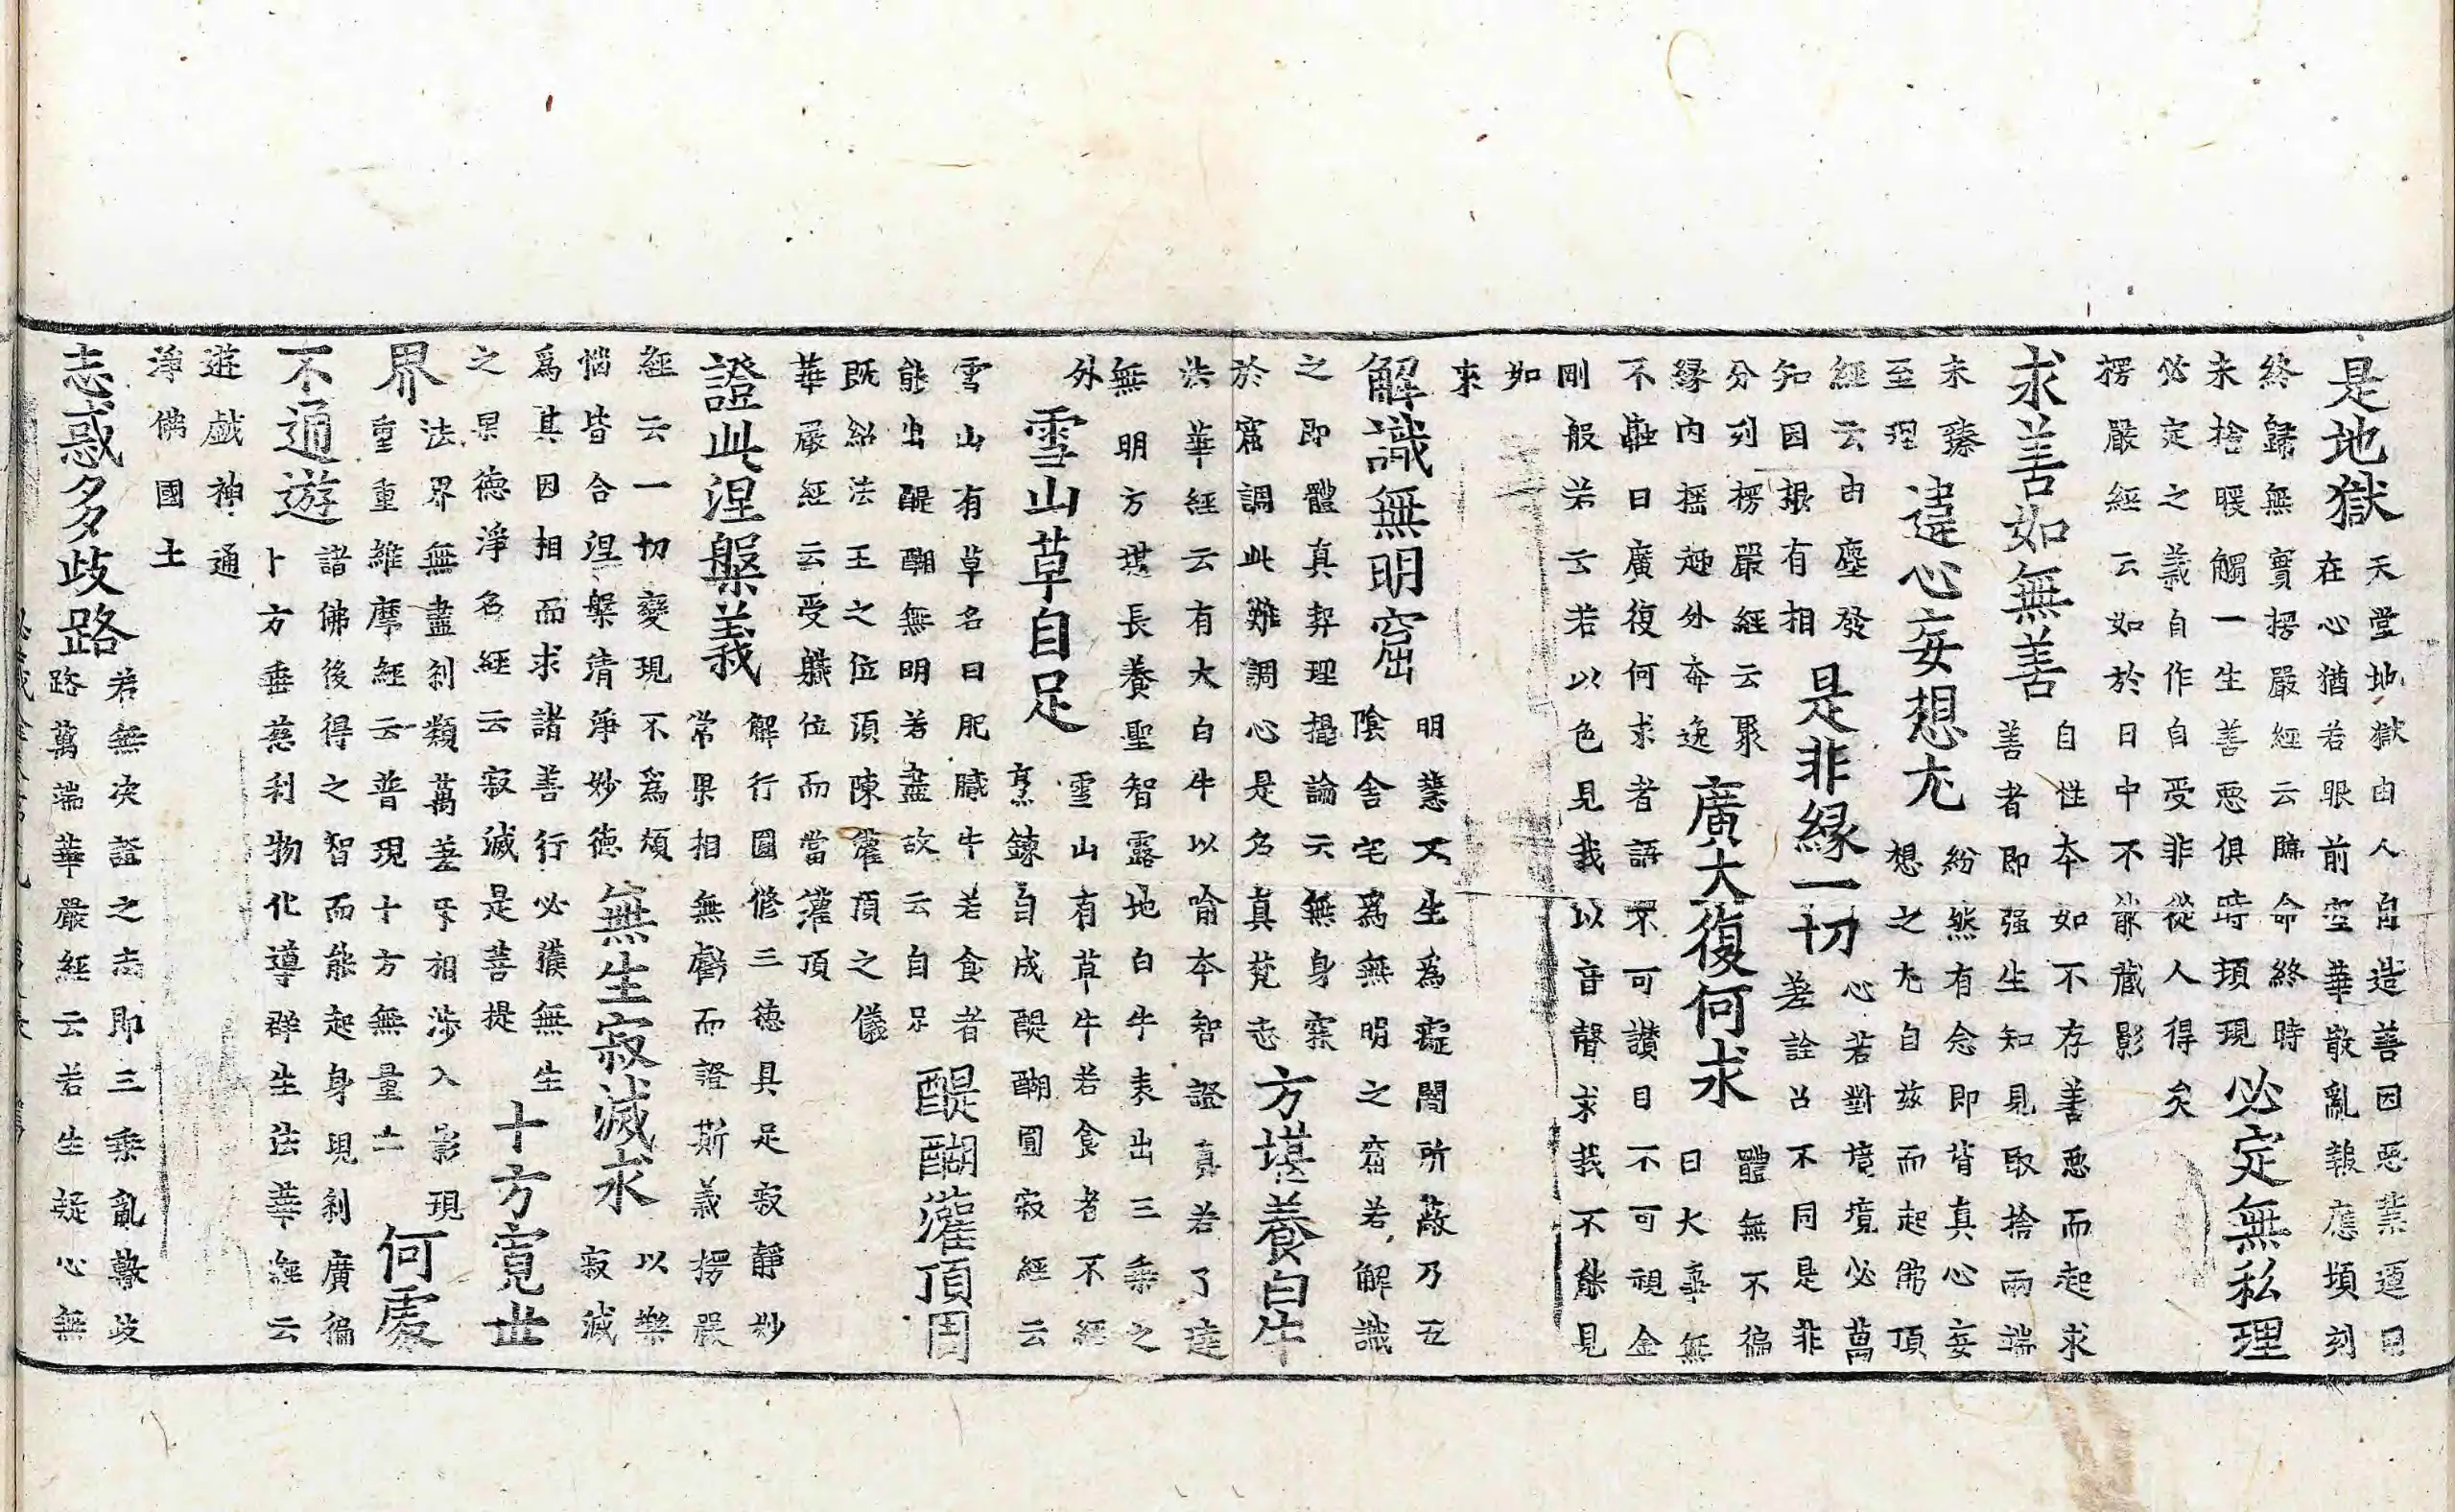 是地獄天堂地獄由人自造善因惡業逈日
在心猶若眼前空華散亂報應頃刻
終歸無實楞嚴經云臨命終時
未捨暖觸一生善惡俱時頓現
必定無私理
必定之義自作自受非從人得矣
楞嚴經云如於日中不能藏影
求善如無善自性本如不存善惡而起求
善者即强生知見取捨兩端
未臻
至理
違心妄想尤紛然有念即背真心妄
想之尤自茲而起佛頂
經云由塵發
知因根有相
是非緣一切心若對境境必萬
差詮呂不同是非
分列楞嚴經云聚
緣内摇趣外奔逸
廣大復何求體無不徧
曰大事無
不蘊曰廣復何求者語不可讃目不可視金
剛般若云若以色見我以音聲求我不能見
如
來
解識無明窟明慧不生為癡闇所蔽乃五
陰舍宅為無明之窟若解識
之即體真契理提論云無身窠
於窟調此難調心是名真梵志
方堪養白牛
法華經云有大白牛以喻本智證真若了達
無明方堪長養聖智露地白牛表出三乘之
外
雪山草自足雪山有草牛若食者不經
烹鍊自成醍醐圓寂經云
雪山有草名曰肥膩牛若食者
能出醍醐無明若盡故云自足
醍醐灌頂周
既紹法王之位湏陳灌頂之儀
華嚴經云受職位而當灌頂
證此涅槃義解行圓修三德具足寂靜妙
常果相無虧而證斯義楞嚴
經云一切變現不為煩
惱皆合涅槃清淨妙德
無生寂滅求以樂
寂滅
為其因相而求諸善行必獲無生
之果德淨名經云寂滅是菩提
十方寬世
界法界無盡刹類萬差互相涉入影現
重重維摩經云普現十方無量土
何處
不通遊諸佛後得之智而能起身現刹廣徧
十方垂慈利物化導群生法華經云
遊戲神通
淨佛國土
志惑多歧路若無决證之志即三乘亂轍歧
路萬端華嚴經云若生疑心無